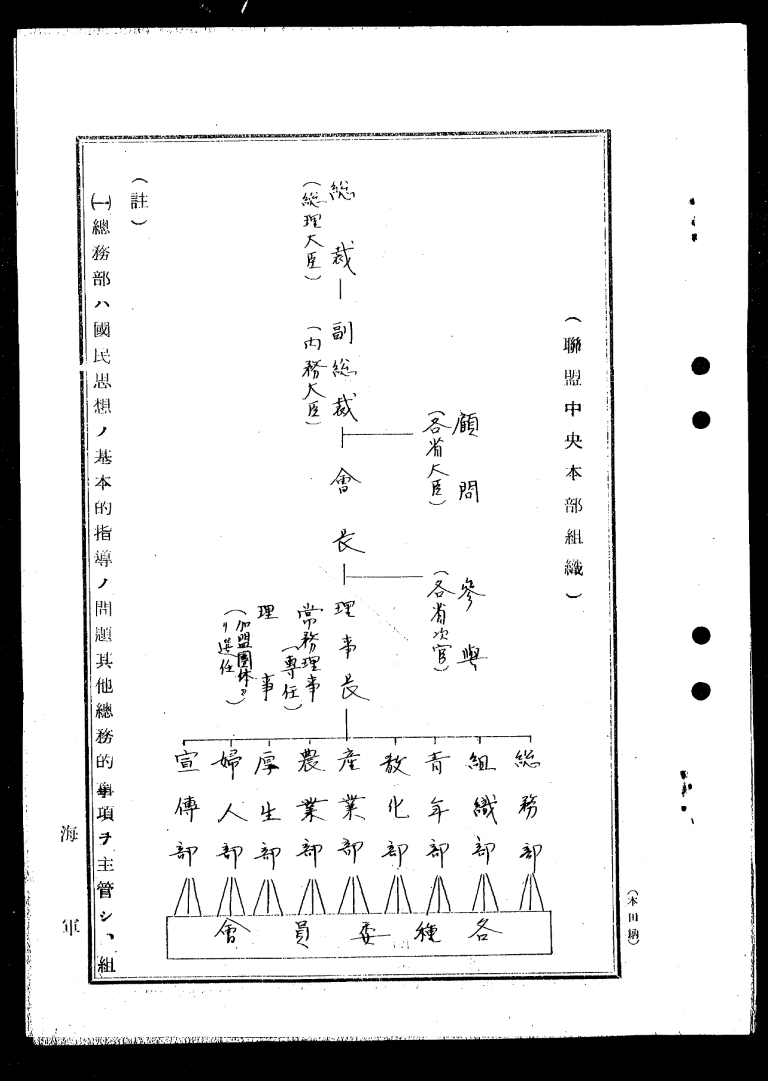 (聯盟中央本部組織)
総裁
(総理大臣)
副総裁
(内務大臣)
顧問
(各省大臣)
會長
參與
(各省次官)
理事長
常務理事
(專任)
理事
(加盟團体ヨリ選任)
総務部
組織部
青年部
教化部
産業部
農業部
厚生部
婦人部
宣傳部
各種委員會
(註)
(一)總務部ハ國民思想ノ基本的指導ノ問題其他總務的事項ヲ主管シ、組
海軍
(本田納)